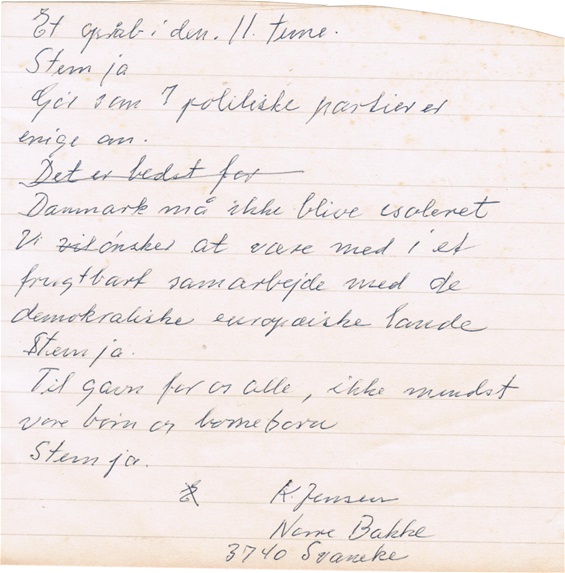 Et opråb i den. 11. time.
Stem ja
Gør som 7 politiske partier er
enige om.
Det er bedst for
Danmark må ikke blive isoleret
Vi vil ønsker at være med i et
frugtbart samarbejde med de
demokratiske europæiske lande
Stem ja.
Til gavn for os alle, ikke mindst
vore børn og børnebørn
Stem ja.
K. Jensen
Nørre Bakke
3740 Svaneke